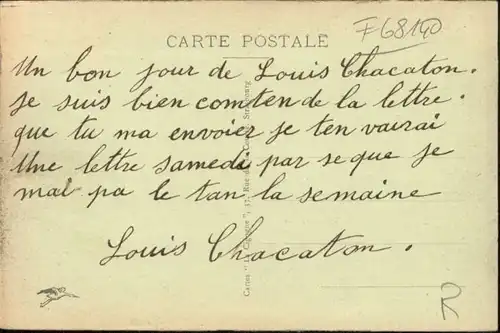 F68140
CARTE POSTALE
Un bon jour de Louis Chacaton.
Je suis bien comten de la lettre.
que tu ma envoier je ten vairai
Une lettre samedi par se que je
mai pa le tan la semaine
Louis Chacaton.
Cartes "La Cigogne", 37, Rue de la Strasbourg
R